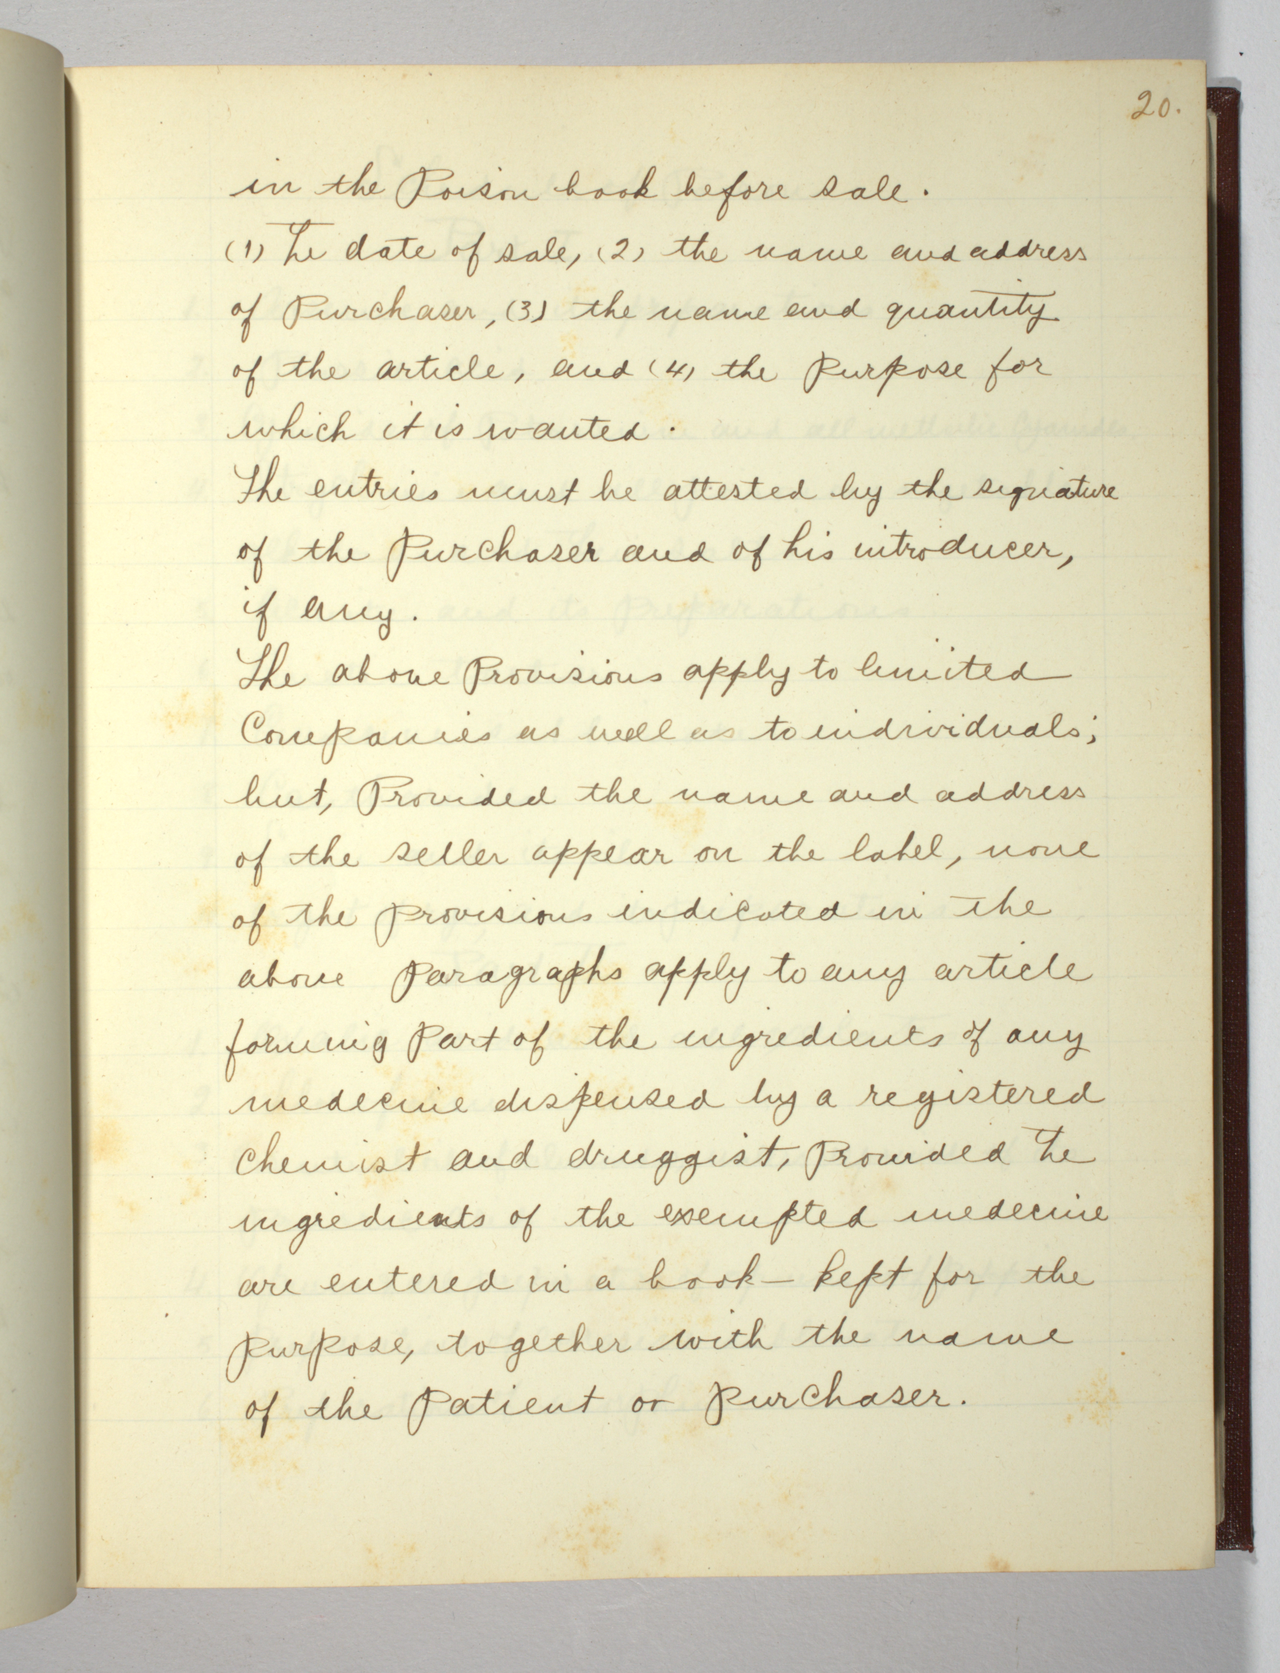 20.
in the Poison book before sale.
(1) The date of sale, (2) the name and address
of Purchaser, (3) the name and quantity
of the article, and (4) the Purpose for
which it is wanted.
The entries must be attested by the signature
of the Purchaser and of his introducer,
if any.
The above Provisions apply to limited
Companies as well as to individuals;
but, Provided the name and address
of the seller appear on the label, none
of the Provisions indicated in the
above Paragraphs apply to any article
forming Part of the ingredients of any
medecine dispensed by a registered
Chemist and druggist, Provided The
ingredients of the exempted medecine
are entered in a book — kept for the
Purpose, together with the name
of the Patient or Purchaser.